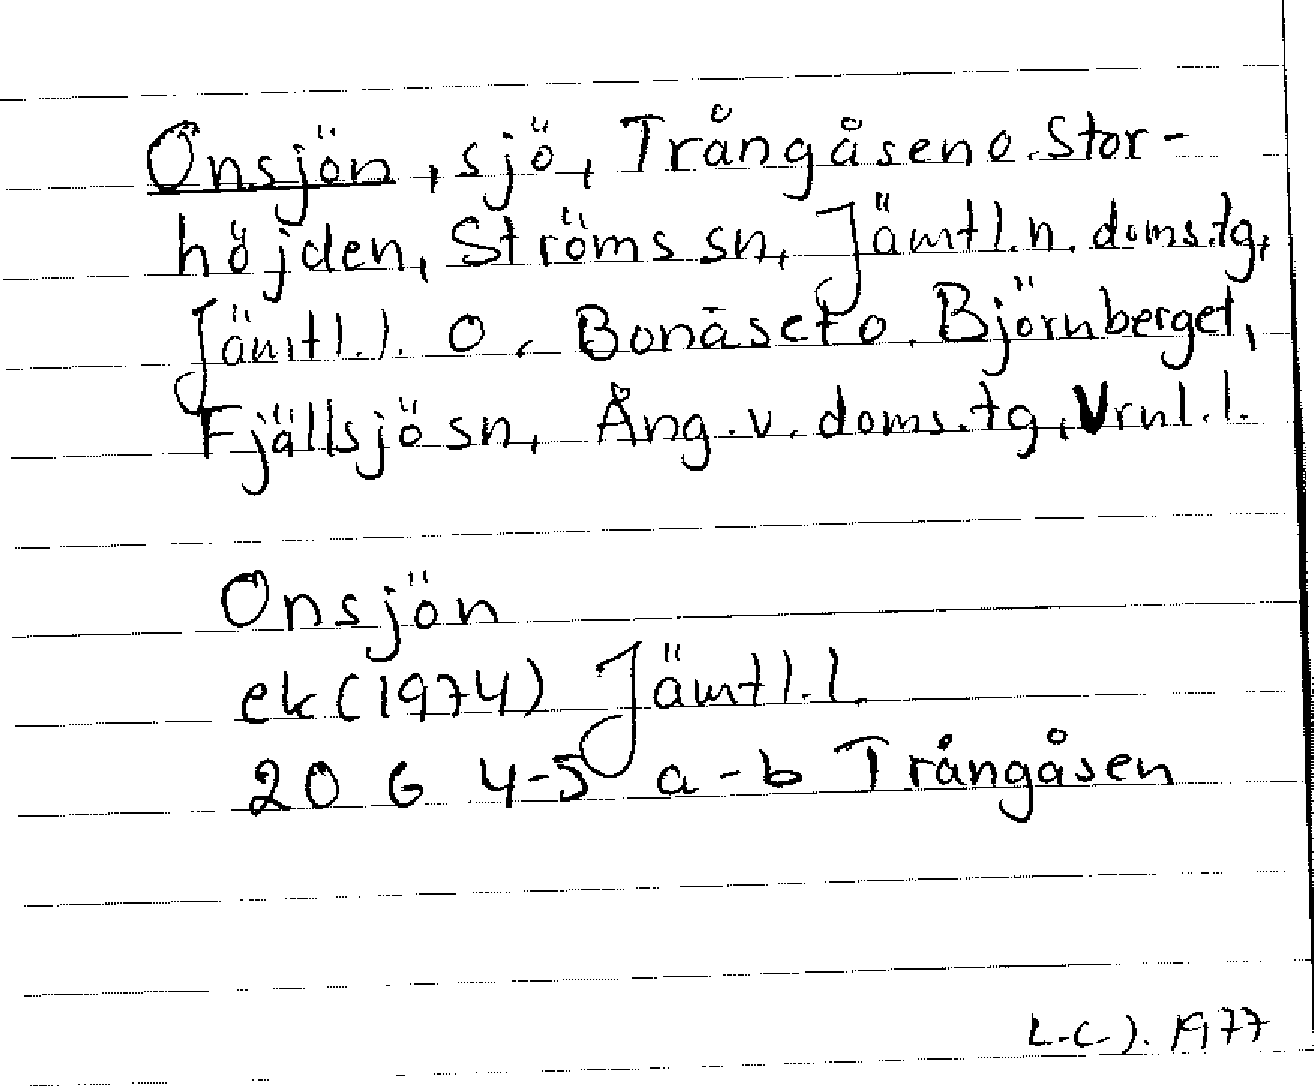 Onsjön, sjö, Trångåsen o. Stor-
höjden, Ströms sn, Jämtl. n. doms.tg,
Jämtl. l. o. Bonäset o. Björnberget,
Fjällsjö sn, Ång. v. doms.tg, Vrnl. l.
Onsjön
ek (1974) Jämtl. l.
20 G 4-5 a-b Trångåsen
L.C.J. 1977